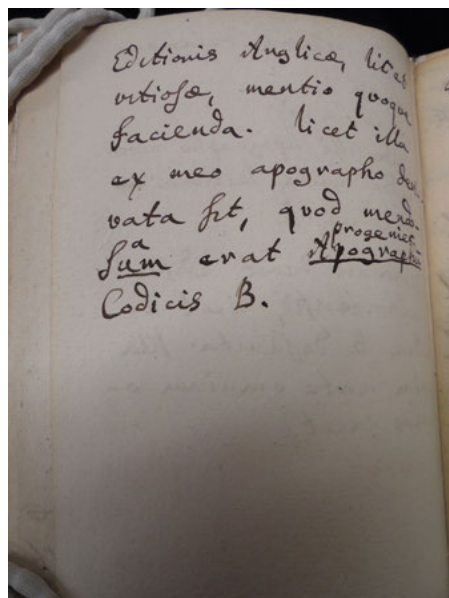 Editionis Anglicæ, licet
vitiosæ, mentio quoque
facienda. licet illa
ex meo apographo deri-
vata sit, quod mendo-
a progenies
sum erat Apographi
Codicis B.